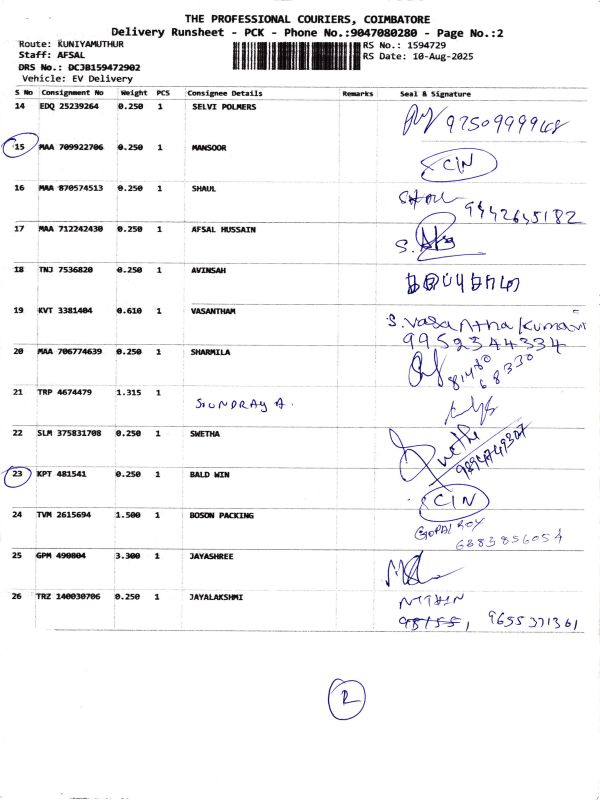 THE PROFESSIONAL COURIERS, COIMBATORE
Delivery Runsheet - PCK - Phone No.:9047080280 - Page No.:2
Route: KUNIYAMUTHUR
RS No.: 1594729
Staff: AFSAL
RS Date: 10-Aug-2025
DRS No.: DCJB159472902
Vehicle: EV Delivery
S No Consignment No Weight PCS Consignee Details Remarks Seal & Signature
14 EDQ 25239264 0.250 1 SELVI POLMERS
15 MAA 709922706 0.250 1 MANSOOR CIN
16 MAA 870574513 0.250 1 SHAUL 9442645182
17 MAA 712242430 0.250 1 AFSAL HUSSAIN
18 TNJ 7536820 0.250 1 AVINSAH
19 KVT 3381404 0.610 1 VASANTHAM S.Vasantha Kumari
9952344334
20 MAA 706774639 0.250 1 SHARMILA
21 TRP 4674479 1.315 1 SOUNDRAYA.
22 SLM 375831708 0.250 1 SWETHA Swetha
23 KPT 481541 0.250 1 BALD WIN CIN
24 TVM 2615694 1.500 1 BOSON PACKING GOPAL ROY
6383856054
25 GPM 490804 3.300 1 JAYASHREE
26 TRZ 140030706 0.250 1 JAYALAKSHMI NITHIN
9655371361
R